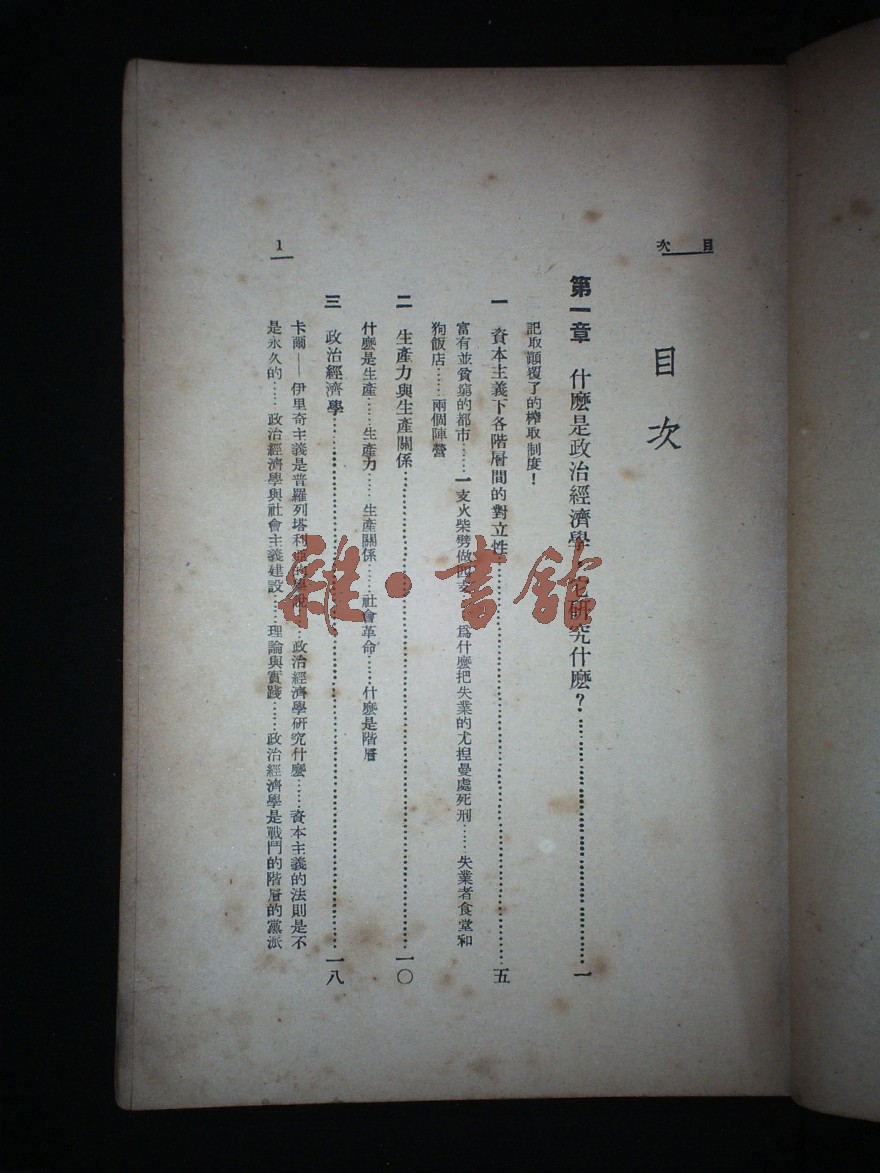 目次
目次
第一章 什麽是政治經濟學 它研究什麽？……一
記取顚覆了的榨取制度！
一 資本主義下各階層間的對立性……五
富有並貧窮的都市……一支火柴劈做四支……爲什麽把失業的尤捏曼處死刑……失業者食堂和
狗飯店……兩個陣營
二 生產力與生產關係……一〇
什麽是生產……生產力……生產關係……社會革命……什麽是階層
三 政治經濟學……一八
卡爾——伊里奇主義是普羅列塔利亞的學說……政治經濟學研究什麽……資本主義的法則是不
是永久的……政治經濟學與社會主義建設……理論與實踐……政治經濟學是戰鬥的階層的黨派
1
雜·書館